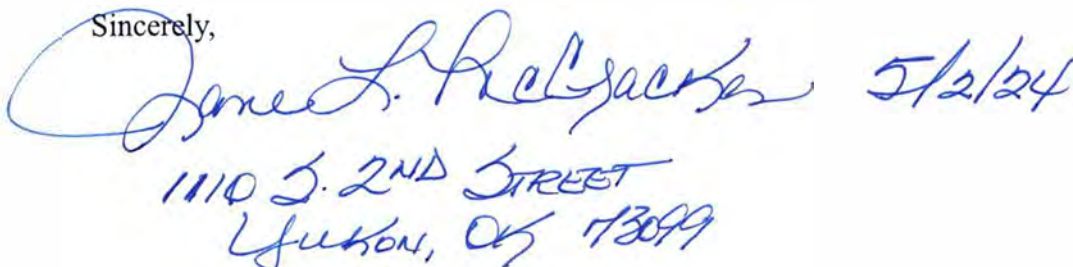 Sincerely,
Jane L. McCracken 5/2/24
1110 S. 2ND STREET
YUKON, OK 73099